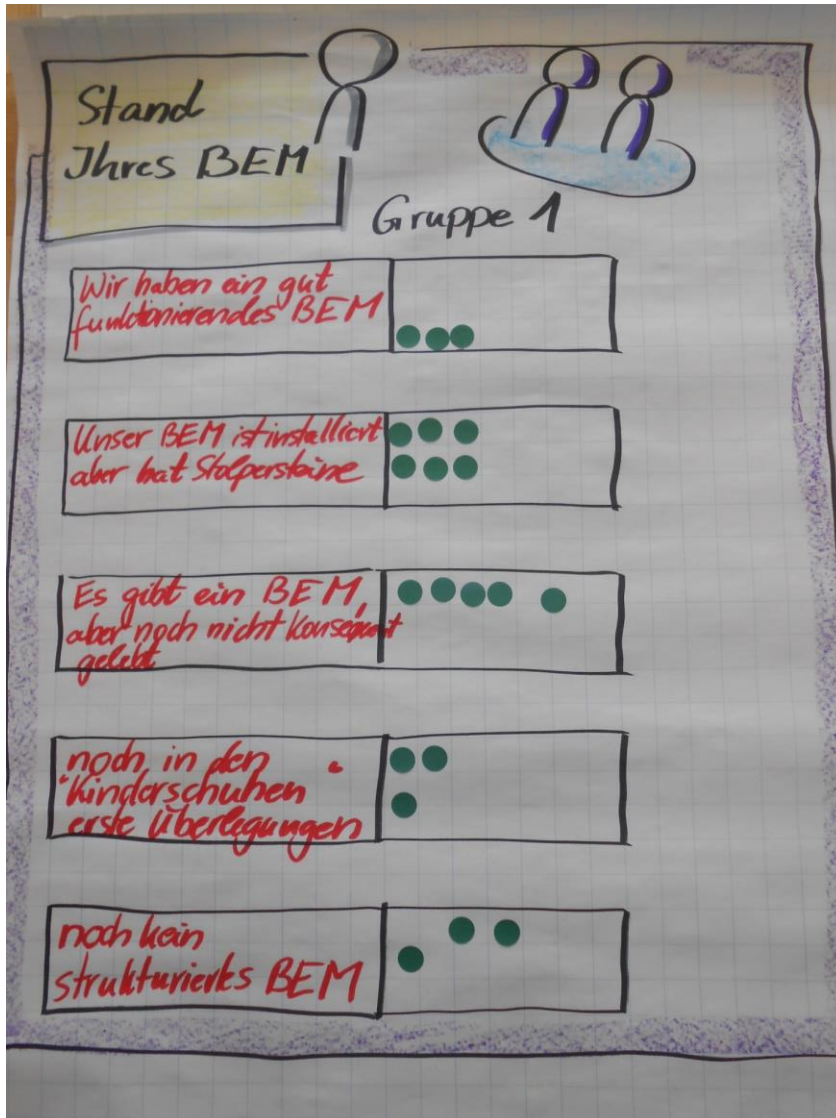 Stand
Ihres BEM
Gruppe 1
Wir haben ein gut
funktionierendes BEM
Unser BEM ist installiert
aber hat Stolpersteine
Es gibt ein BEM,
aber noch nicht konsequent
gelebt
noch in den
"Kinderschuhen"
erste Überlegungen
noch kein
strukturiertes BEM